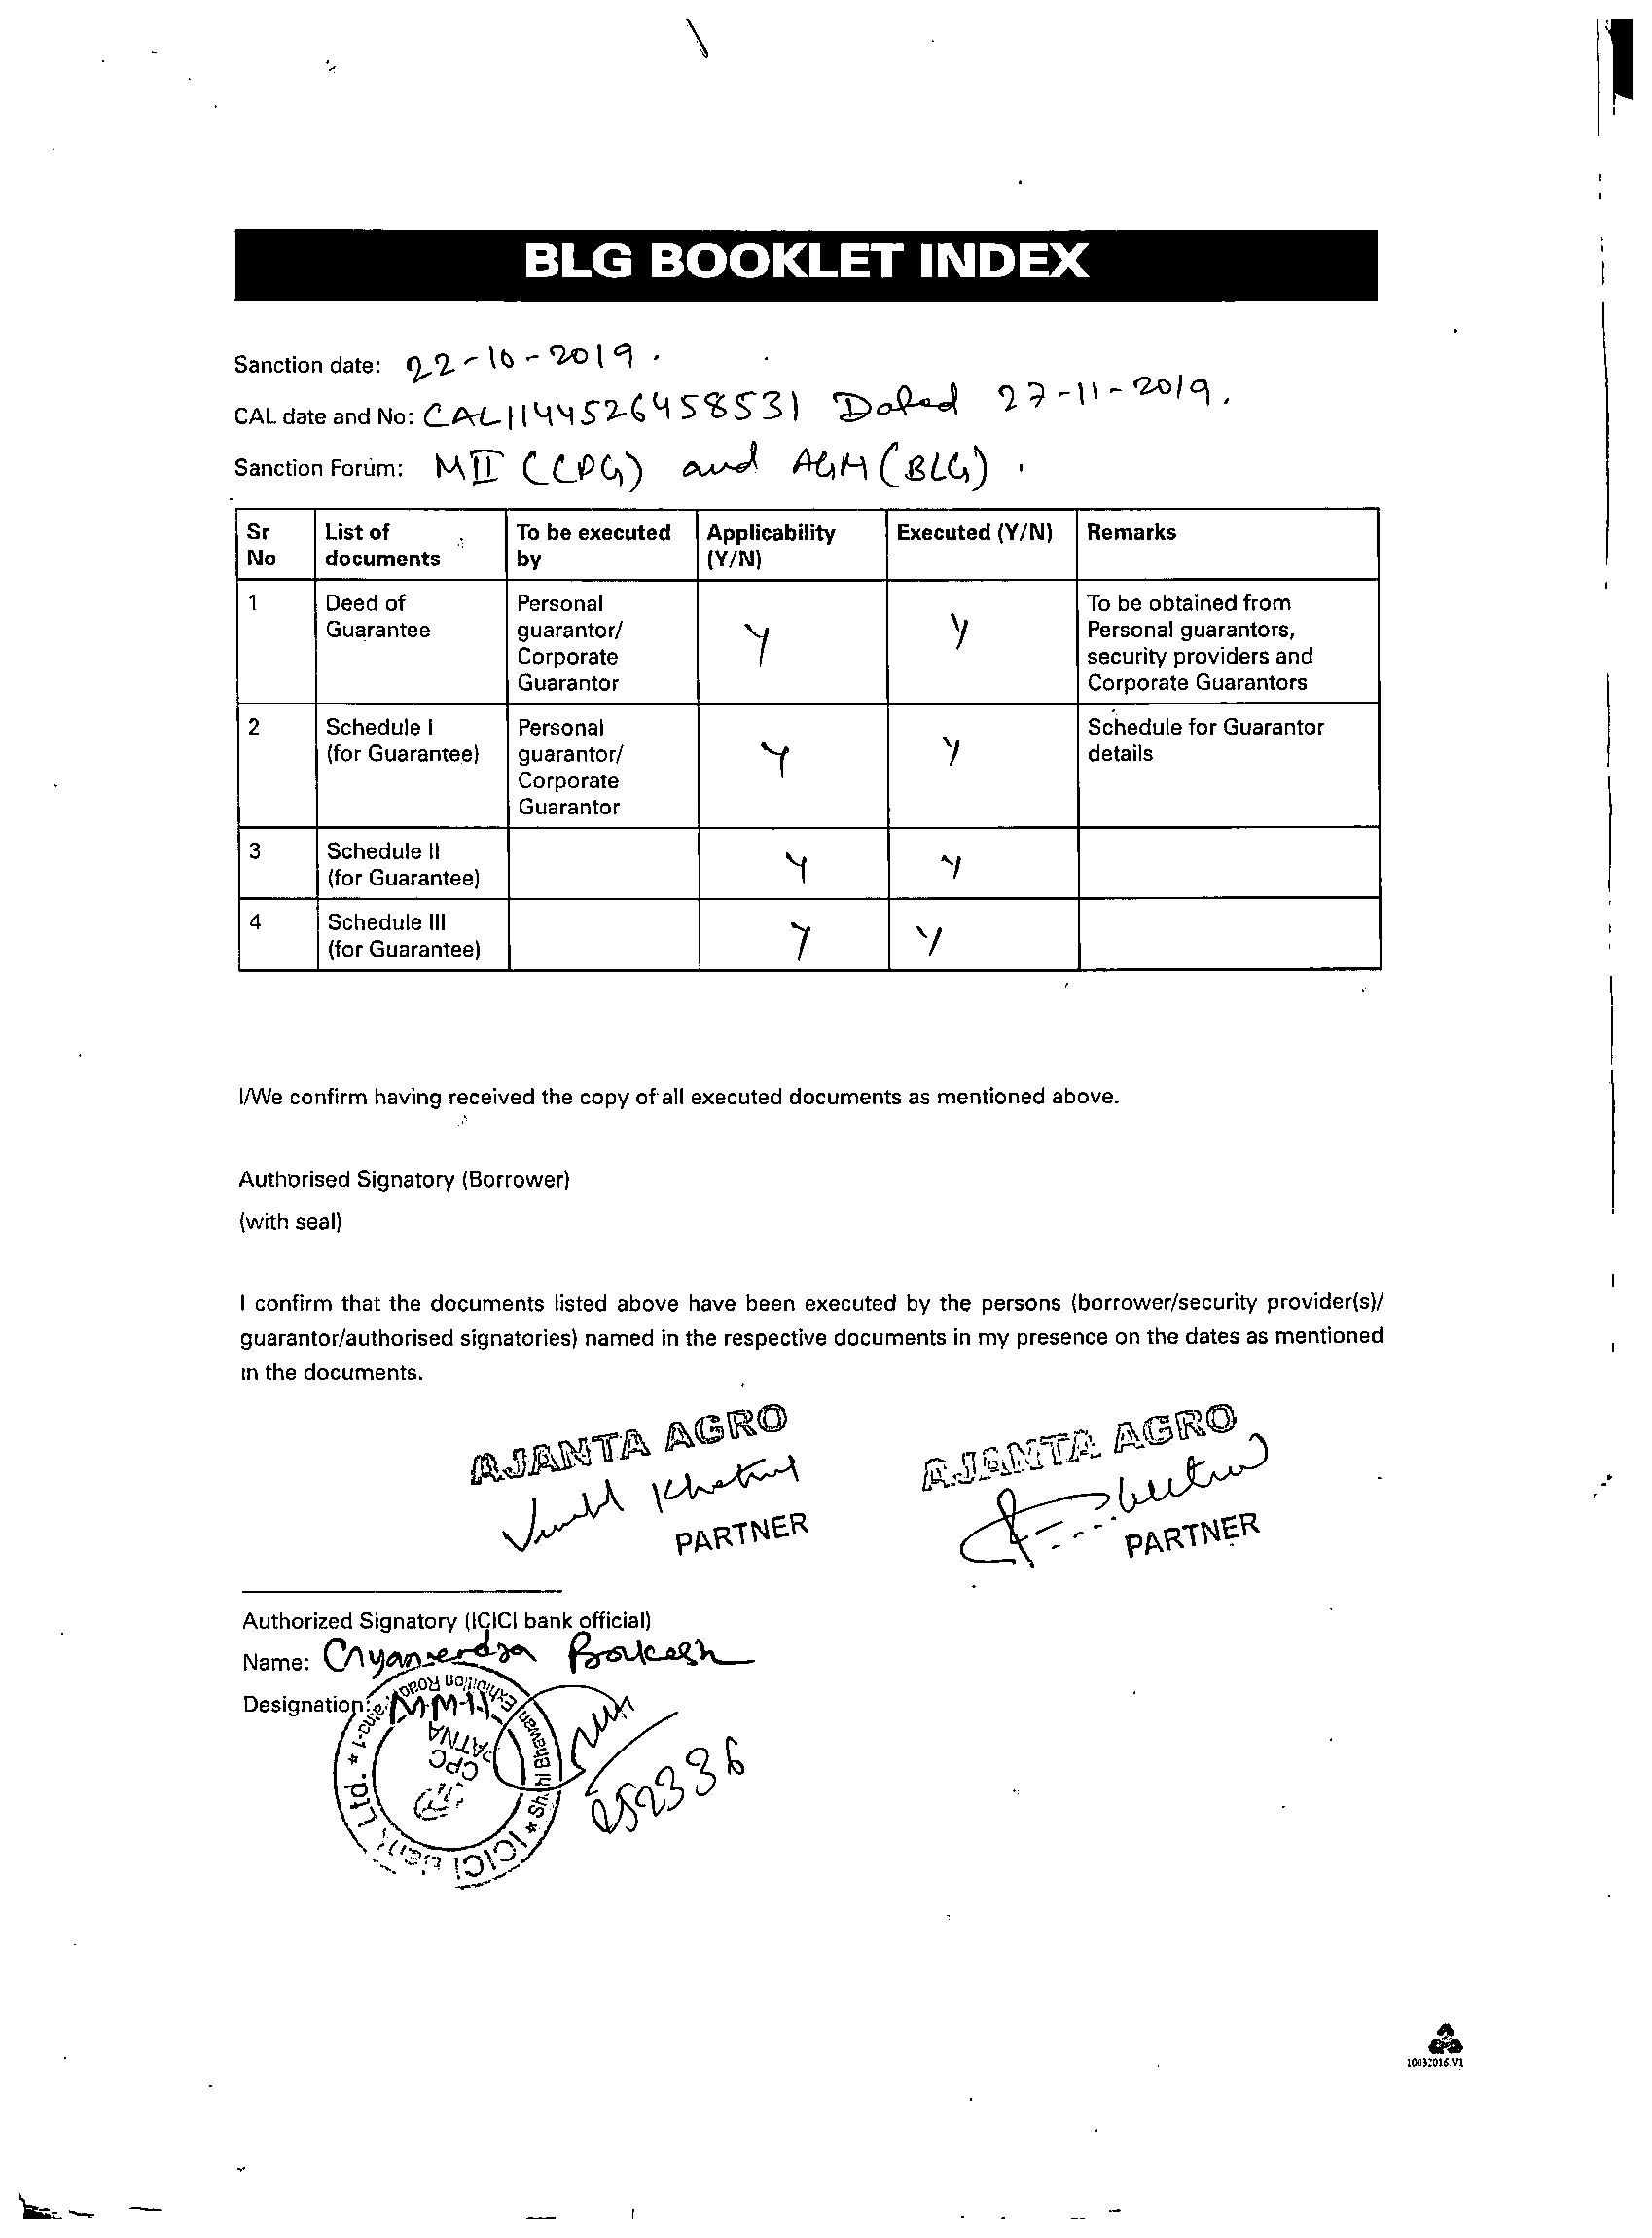 BLG BOOKLET INDEX
Sanction date: 22-10-2019.
CAL date and No: CAL1144526458531 Dated 27-11-2019.
Sanction Forum: MII (CPG) and AGM (BLG).
Sr No | List of documents | To be executed by | Applicability (Y/N) | Executed (Y/N) | Remarks
1 | Deed of Guarantee | Personal guarantor/ Corporate Guarantor | Y | Y | To be obtained from Personal guarantors, security providers and Corporate Guarantors
2 | Schedule I (for Guarantee) | Personal guarantor/ Corporate Guarantor | Y | Y | Schedule for Guarantor details
3 | Schedule II (for Guarantee) | Y | Y
4 | Schedule III (for Guarantee) | Y | Y
I/We confirm having received the copy of all executed documents as mentioned above.
Authorised Signatory (Borrower)
(with seal)
I confirm that the documents listed above have been executed by the persons (borrower/security provider(s)/
guarantor/authorised signatories) named in the respective documents in my presence on the dates as mentioned
in the documents.
AJANTA AGRO AJANTA AGRO
PARTNER PARTNER
Authorized Signatory (ICICI bank official)
Name:
Designation: MM-II
ICICI Bank Ltd. * Shahi Bhawan Exhibition Road
CPC
PATNA
252336
10032016.V1